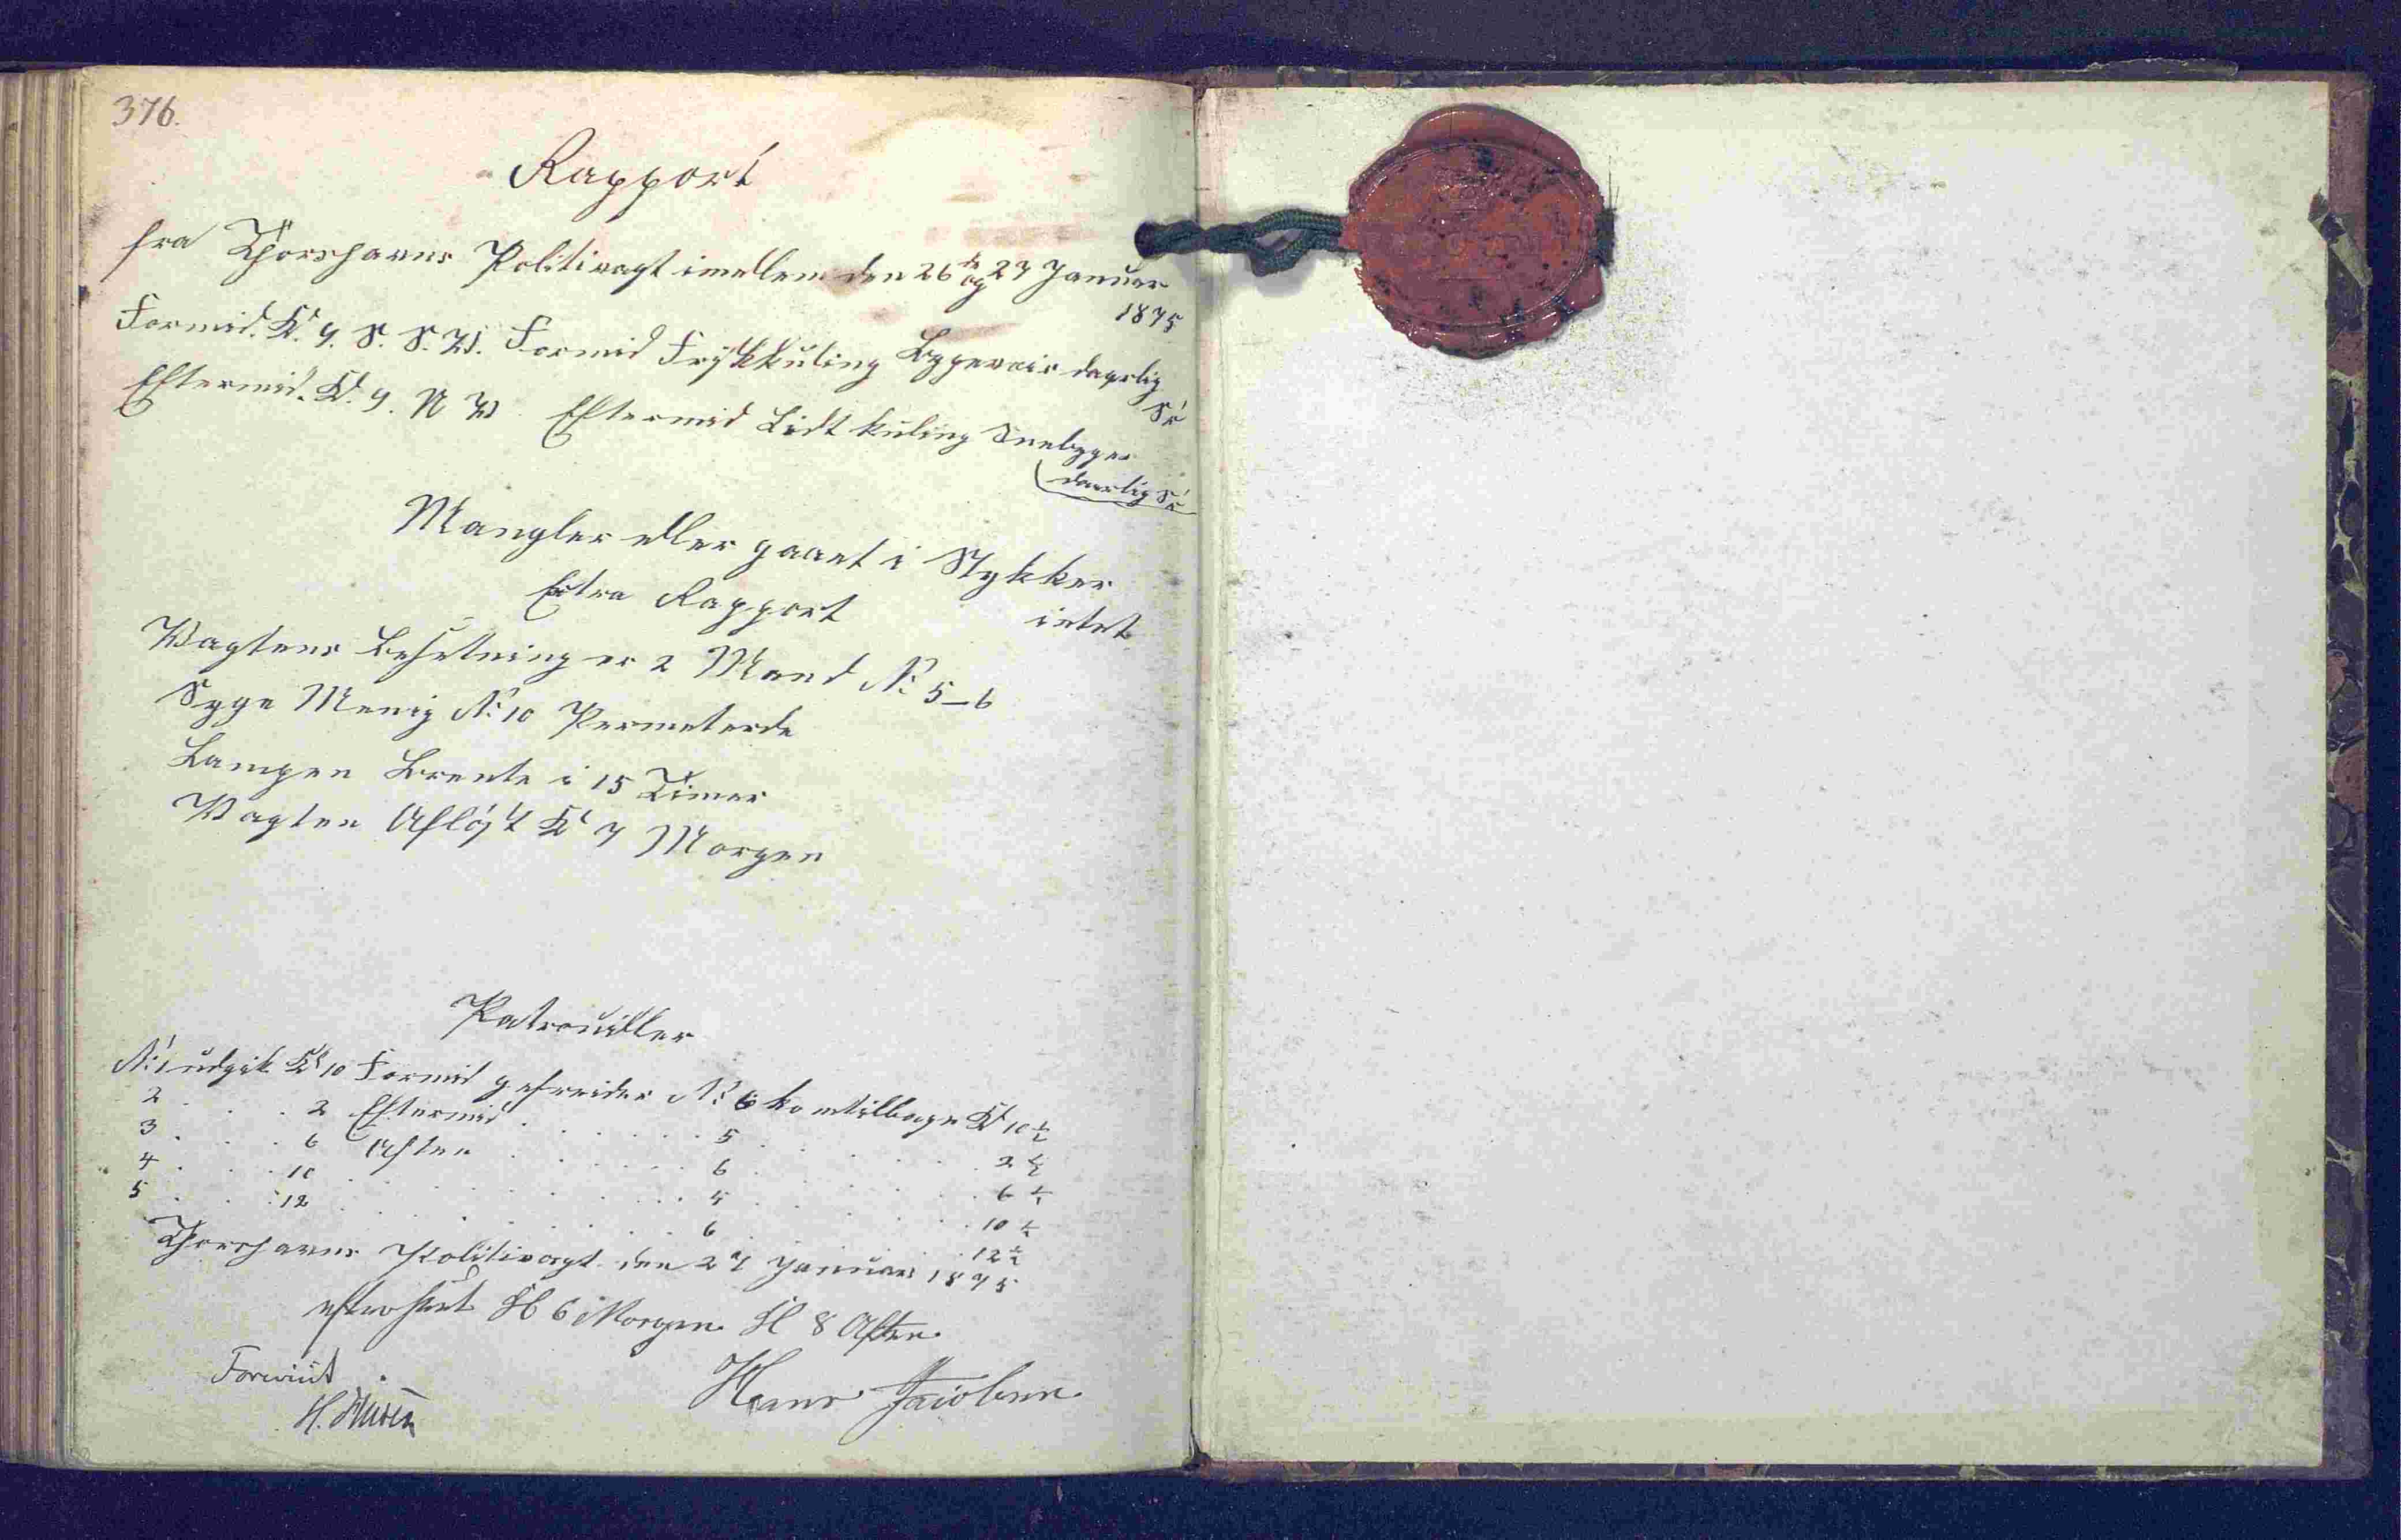 376.
Rapport
fra Thorshavns Politivagt imellem den 26de og 27 Januar
1875
Formid. Kl. 9. S. S. W. Formid Friskkuling Bygeveir daarlig
Sö
Eftermid. Kl. 9. N W Eftermid Lidt kuling Sneebyger
daarlig Sö
Mangler eller gaaet i Stykker
intet
Extra Rapport
Vagtens Besetning er 2 Mand No 5-6
Syge Menig No 10 Permeterede
Lampen Brente i 15 Timer
Vagten Afløst Kl 7 Morgen
Patrouiller
No 1 udgik Kl 10 Formid gefreider No 6 kom tilbage Kl 10 1/2
2 . . . 2 Eftermid . . . . . . 5 . . . . . 2 1/2
3 . . . 6 Aften . . . . . . 6 . . . . . 6 1/2
4 . . . 10 . . . . . . 5 . . . . . 10 1/2
5 . . . 12 . . . . . . 6 . . . . . 12 1/2
Thorshavns Politivagt den 27 Januar 1875
efterseet Kl 6 Morgen Kl 8 Aften
Hans Jacobsen
H.